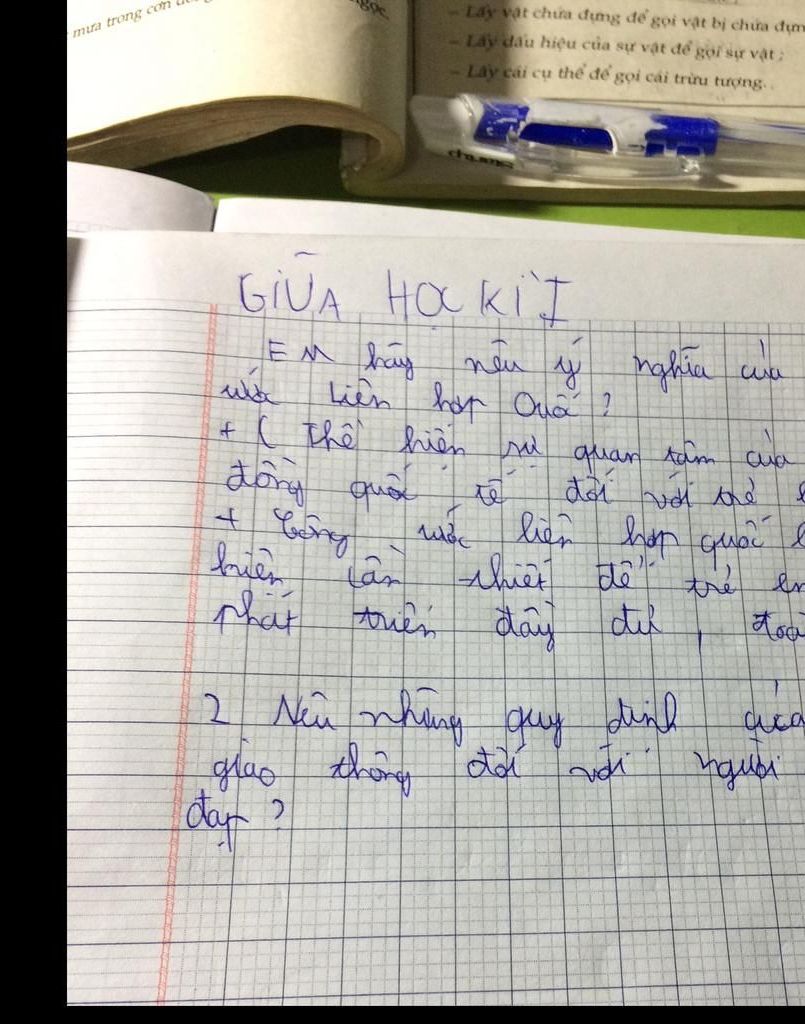 mưa trong cơn
ngọc.
- Lấy vật chứa đựng để gọi vật bị chứa đựn
- Lấy dấu hiệu của sự vật để gọi sự vật ;
- Lấy cái cụ thể để gọi cái trừu tượng.
GIỮA HỌC KÌ I
EM hãy nêu ý nghĩa của
ước Liên hợp Quố ?
+ ( Thể hiện sự quan tâm của
đồng quốc tế đối với trẻ
+ Công ước liên hợp quốc
hiện cần thiết để trẻ em
phát triển đầy đủ , đoà
2 Nêu những quy định của
giao thông đối với người
đạp ?